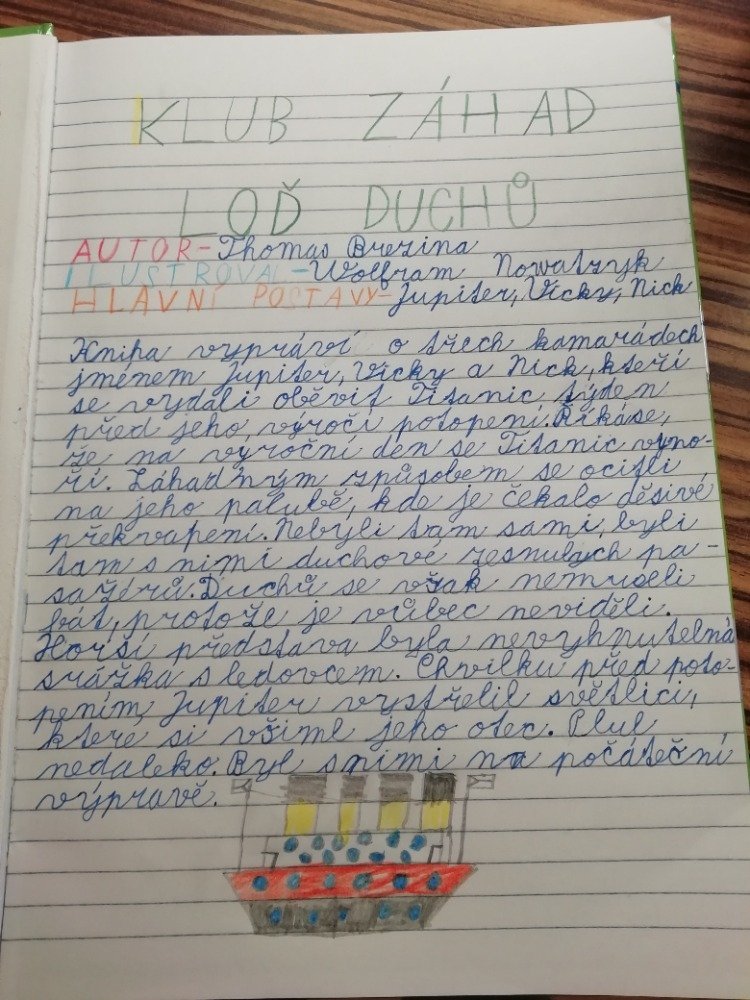 KLUB ZÁHAD
LOĎ DUCHŮ
AUTOR-Thomas Brezina
ILUSTROVAL-Wolfram Nowatzyk
HLAVNÍ POSTAVY-Jupiter, Vicky, Nick
Kniha vypráví o třech kamarádech
jménem Jupiter, Vicky a Nick, kteří
se vydali oběvit Titanic týden
před jeho výročí potopení. Říká se,
že na výroční den se Titanic vyno-
ří. Záhadným způsobem se ocitli
na jeho palubě, kde je čekalo děsivé
překvapení. Nebyli tam sami, byli
tam s nimi duchové zesnulých pa-
sažérů. Duchů se však nemuseli
bát, protože je vůbec neviděli.
Horší představa byla nevyhnutelná
srážka s ledovcem. Chvilku před poto-
pením, Jupiter vystřelil světlici,
které si všiml jeho otec. Plul
nedaleko. Byl s nimi na počáteční
výpravě.